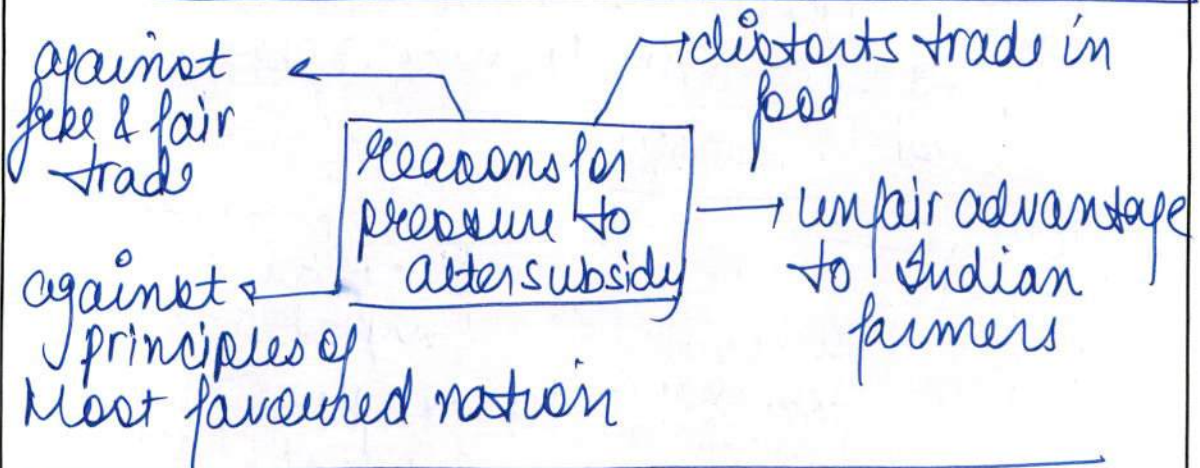 against
free & fair
trade
distorts trade in
food
reasons for
pressure to
alter subsidy
unfair advantage
to Indian
farmers
against
principles of
Most favoured nation